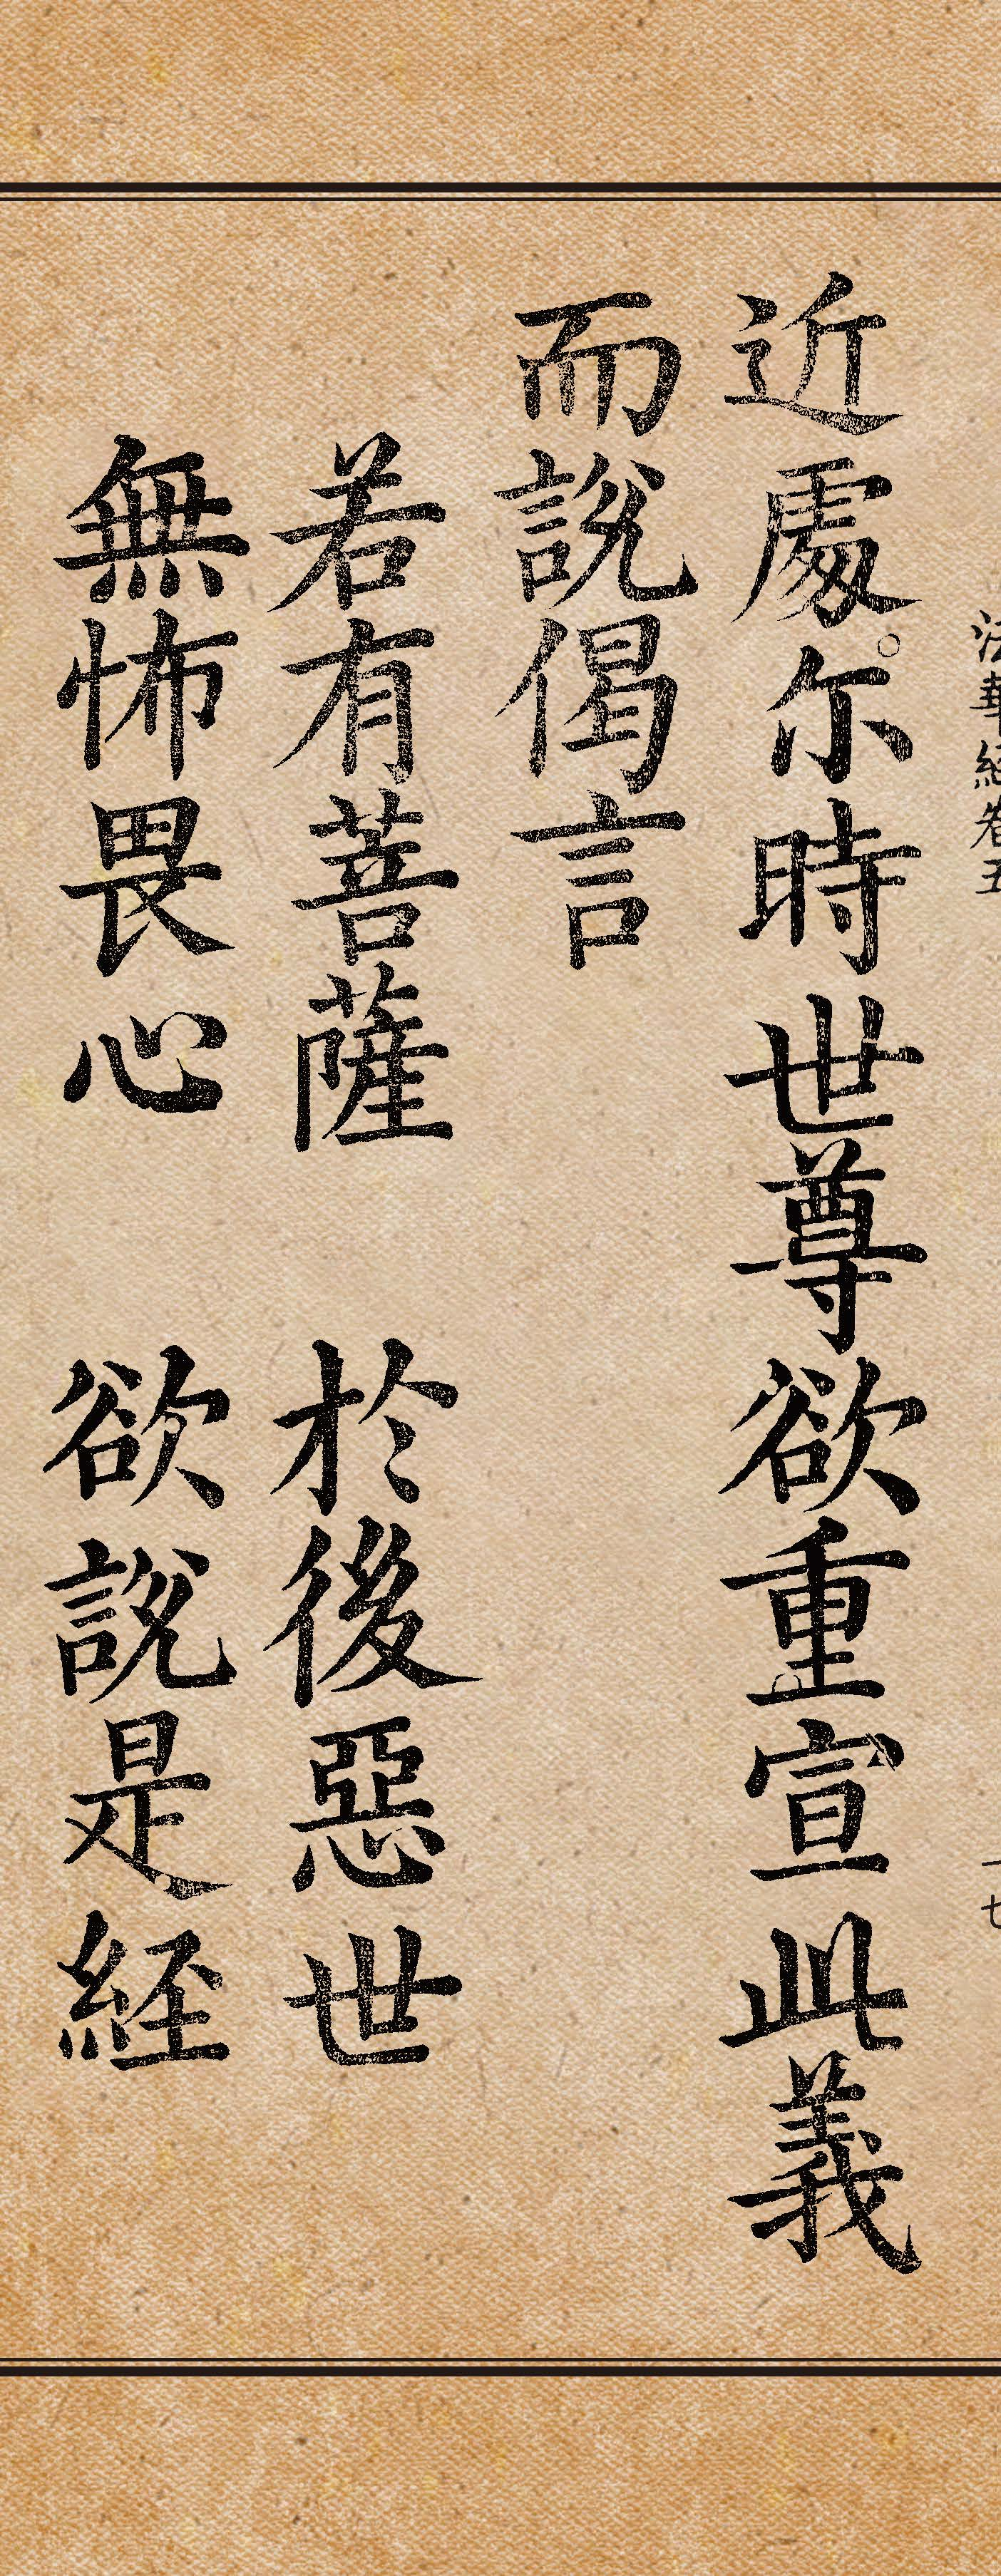 法華經卷五
十七
近處。尓時世尊欲重宣此義
而說偈言
若有菩薩 於後惡世
無怖畏心 欲說是経